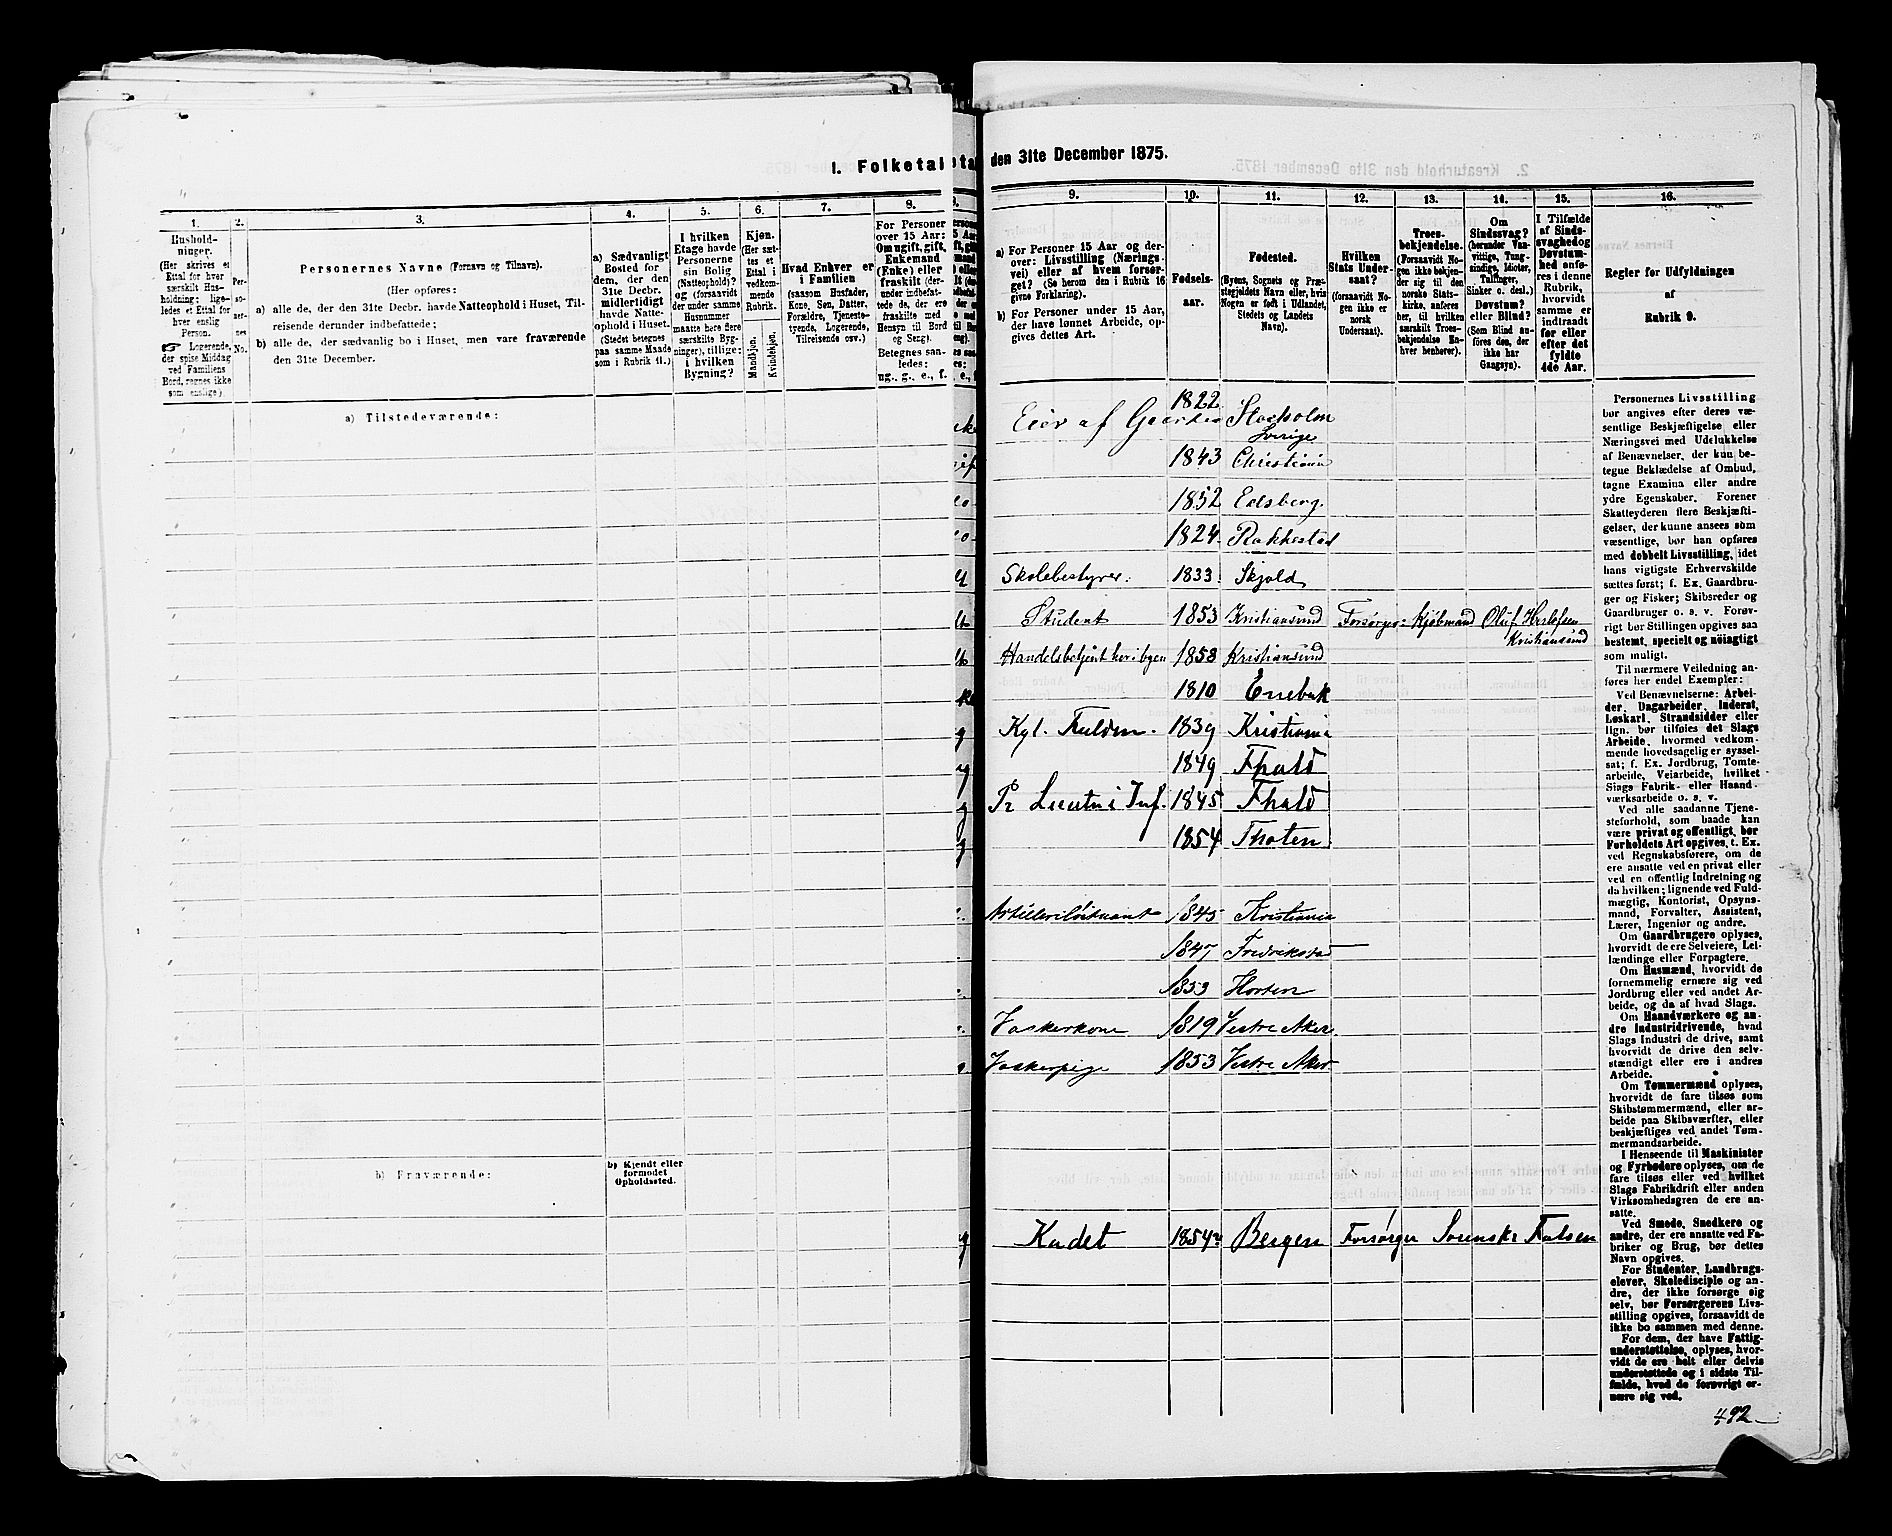 I. Folketal
1.
2.
3.
4.
5.
6.
7.
8.
Hushold-
ninger.
(Her skrives et
Ettal for hver
særskilt Hus-
holdning; lige-
ledes et Ettal for
hver enslig
Person.
☞ Logerende,
der spise Middag
ved Familiens
Bord, regnes ikke
som enslige).
Per-
so-
ner-
nes
No.
Personernes Navne (Fornavn og Tilnavn).
(Her opføres:
a) alle de, der den 31te Decbr. havde Natteophold i Huset, Til-
reisende derunder indbefattede;
b) alle de, der sædvanlig bo i Huset, men vare fraværende
den 31te December.
a) Sædvanligt
Bosted for
dem, der den
31te Decbr.
midlertidigt
havde Natte-
ophold i Huset.
(Stedet betegnes
paa samme Maade
som i Rubrik 11.)
I hvilken
Etage havde
Personerne
sin Bolig
(Natteophold)?
og (forsaavidt
der under samme
Husnummer
maatte høre flere
særskilte Byg-
ninger), tillige:
i hvilken
Bygning?
Kjøn.
(Her sæt-
tes et
Ettal i
vedkom-
mende
Rubrik.
Mandkjøn.
Kvindekjøn.
Hvad Enhver er
i Familien
(saasom Husfader,
Kone, Søn, Datter,
Forældre, Tjeneste-
tyende, Logerende,
Tilreisende osv.)
For Personer
over 15 Aar:
Om ugift, gift,
Enkemand
(Enke) eller
fraskilt (der-
under indbefat-
tede de, der ere
fraskilte med
Hensyn til Bord
og Seng).
Betegnes saa-
ledes:
ug., g., e., f.
a) Tilstedeværende:
b) Fraværende:
b) Kjendt eller
formodet
Opholdssted.
den 31te December 1875.
9.
10.
11.
12.
13.
14.
15.
16.
a) For Personer 15 Aar og der-
over: Livsstilling (Nærings-
vei) eller af hvem forsør-
get? (Se herom den i Rubrik 16
givne Forklaring).
b) For Personer under 15 Aar,
der have lønnet Arbeide, op-
gives dettes Art.
Fødsels-
aar.
Fødested.
(Byens, Sognets og Præ-
stegjeldets Navn eller, hvis
Nogen er født i Udlandet,
Stedets og Landets
Navn).
Hvilken
Stats Under-
saat?
(forsaavidt No-
gen ikke er
norsk
Undersaat).
Troes-
bekjendelse.
(Forsaavidt No-
gen ikke bekjen-
der sig til den
norske Stats-
kirke, anføres
her, til hvilken
særskilt Troes-
bekjendelse En-
hver henhører).
Om
Sindssvag?
(herunder Van-
vittige, Tung-
sindige, Idioter,
Tullinger,
Sinker o. desl.)
Døvstum?
eller Blind?
(Som Blind an-
føres den, der
ikke har
Gangsyn).
I Tilfælde
af Sinds-
svaghed og
Døvstum-
hed anfø-
res i denne
Rubrik,
hvorvidt
samme er
indtraadt
før eller
efter det
fyldte
4de Aar.
Regler for Udfyldningen
af
Rubrik 9.
Eier af Gaarden 1822 Stockholm
Sverige
1843 Christiania
1852 Edsberg.
1824 Rakkestad
Skolebestyrer. 1833. Skjold
Student 1853 Kristiansund Forsørger: Kjøbmand Oluf Herlofsen
Kristiansund
Handelsbetjent her i byen 1858 Kristiansund
1810 Enebak
Kgl. Fuldm. 1839 Kristiania
1849
1845
1854 Thoten
Artilleriløitnant 1845 Kristiania
1847 Fredrikstad
1853 Horten
Vaskerkone 1819 Vestre Aker.
Vaskerpige 1853 Vestre Aker
Kadet 1854 Bergen Forsørger
Personernes Livsstilling
bør angives efter deres væ-
sentlige Beskjæftigelse eller
Næringsvei med Udelukkelse
af Benævnelser, der kun be-
tegne Beklædelse af Ombud,
tagne Examina eller andre
ydre Egenskaber. Forener
Skatteyderen flere Beskjæfti-
gelser, der kunne ansees som
væsentlige, bør han opføres
med dobbelt Livsstilling, idet
hans vigtigste Erhvervskilde
sættes først; f. Ex. Gaardbru-
ger og Fisker; Skibsreder og
Gaardbruger o. s. v. Forøv-
rigt bør Stillingen opgives saa
bestemt, specielt og nøiagtigt
som muligt.
Til nærmere Veiledning an-
føres her endel Exempler:
Ved Benævnelserne: Arbei-
der, Dagarbeider, Inderst,
Løskarl, Strandsidder eller
lign. bør tilføies det Slags
Arbeide, hvormed vedkom-
mende hovedsagelig er syssel-
sat; f. Ex. Jordbrug, Tomte-
arbeide, Veiarbeide, hvilket
Slags Fabrik- eller Haand-
værksarbeide o. s. v.
Ved alle saadanne Tjene-
steforhold, som baade kan
være privat og offentligt, bør
Forholdets Art opgives, t. Ex.
ved Regnskabsførere, om de
ere ansatte ved en privat eller
ved en offentlig Indretning og
da hvilken; lignende ved Fuld-
mægtig, Kontorist, Opsyns-
mand, Forvalter, Assistent,
Lærer, Ingeniør og andre.
Om Gaardbrugere oplyses,
hvorvidt de ere Selveiere, Lei-
lændinge eller Forpagtere.
Om Husmænd, hvorvidt de
fornemmelig ernære sig ved
Jordbrug eller ved andet Ar-
beide, og da af hvad Slags.
Om Haandværkere og an-
dre Industridrivende, hvad
Slags Industri de drive, samt
hvorvidt de drive den selv-
stændigt eller ere i andres
Arbeide.
Om Tømmermænd oplyses,
hvorvidt de fare tilsøs som
Skibstømmermænd, eller ar-
beide paa Skibsværfter, eller
beskjæftiges ved andet Tøm-
mermandsarbeide.
I Henseende til Maskinister
og Fyrbødere oplyses, om de
fare tilsøs eller ved hvilket
Slags Fabrikdrift eller anden
Virksomhedsgren de ere an-
satte.
Ved Smede, Snedkere og
andre, der ere ansatte ved Fa-
briker og Brug, bør dettes
Navn opgives.
For Studenter, Landbrugs-
elever, Skoledisciple og an-
dre, der ikke forsørge sig
selv, bør Forsørgerens Livs-
stilling opgives, forsaavidt de
ikke bo sammen med denne.
For dem, der have Fattig-
understøttelse, oplyses, hvor-
vidt de ere helt eller delvis
understøttede og i sidste Til-
fælde, hvad de forøvrigt er-
nære sig ved.
492